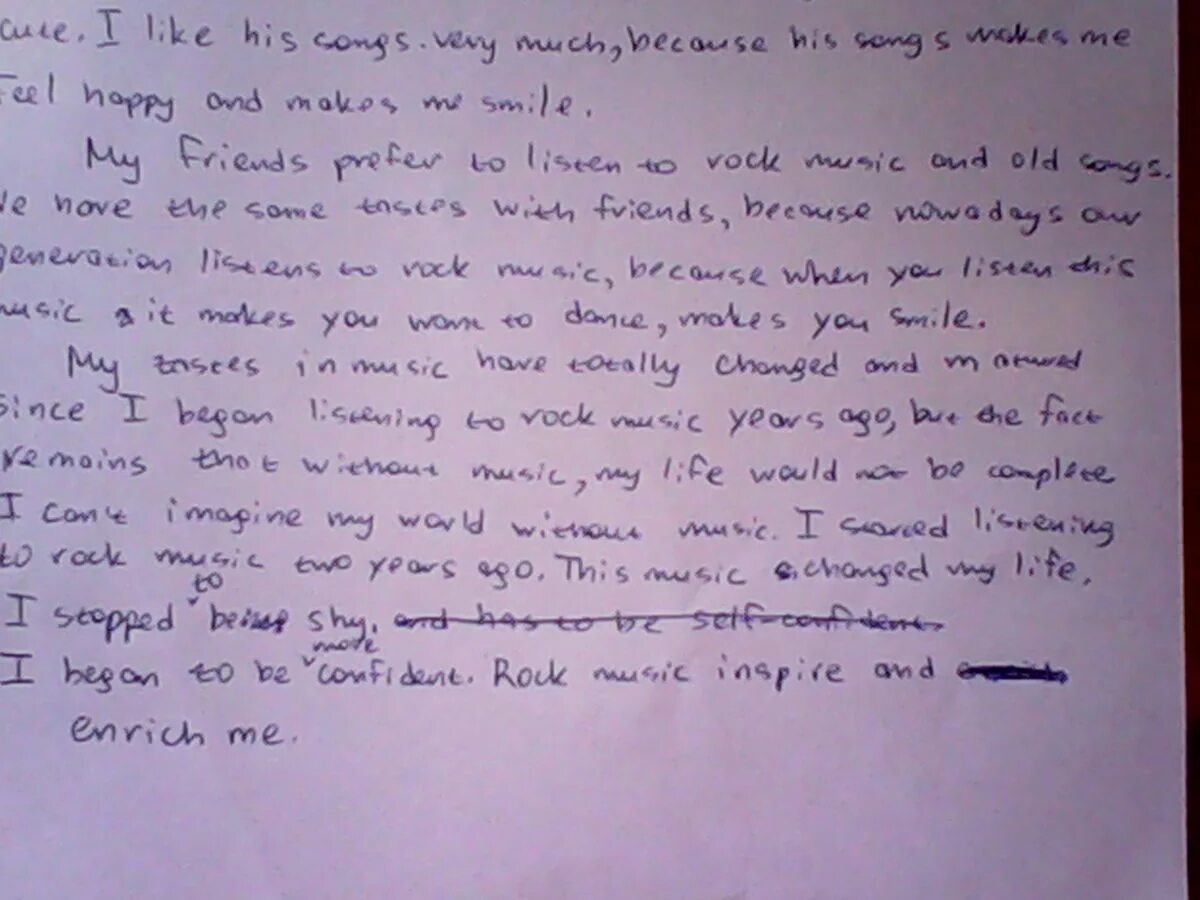 cute. I like his songs. very much, because his songs makes me
feel happy and makes me smile.
My friends prefer to listen to rock music and old songs.
We have the same tastes with friends, because nowadays our
generation listens to rock music, because when you listen this
music it makes you want to dance, makes you smile.
My tastes in music have totally changed and matured
since I began listening to rock music years ago, but the fact
remains that without music, my life would not be complete
I can't imagine my world without music. I started listening
to rock music two years ago. This music changed my life.
I stopped to be shy. and has to be self-confident.
I began to be more confident. Rock music inspire and
enrich me.